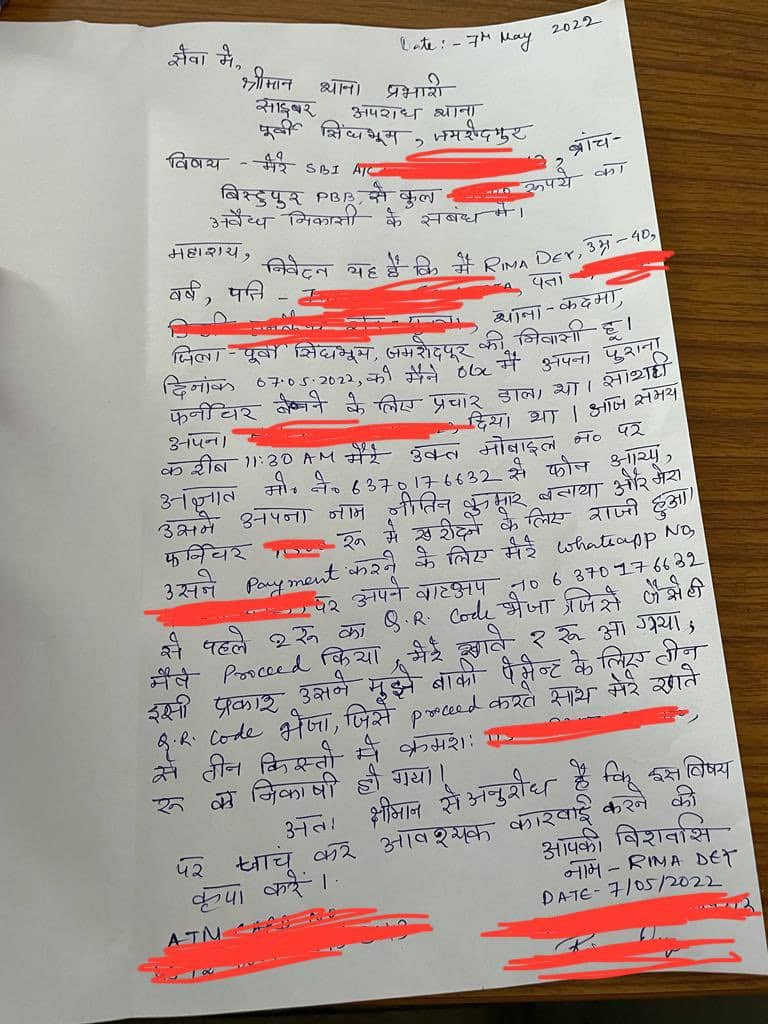 Date:- 7th May 2022
सेवा में,
श्रीमान थाना प्रभारी
साइबर अपराध थाना
पूर्वी सिंहभूम, जमशेदपुर
विषय - मेरे SBI A/C , ब्रांच-
बिस्टुपुर PBB, से कुल रूपये का
अवैध निकासी के संबंध में।
महाशय,
निवेदन यह है कि मैं RIMA DEY, उम्र-40,
वर्ष, पति - , पता
, थाना-कदमा,
जिला-पूर्वी सिंहभूम, जमशेदपुर की निवासी हूं।
दिनांक 07.05.2022, को मैंने Olx में अपना पुराना
फर्नीचर बेचने के लिए प्रचार डाला था। साथही
अपना दिया था। आज समय
करीब 11:30 AM मेरे उक्त मोबाइल न० पर
अज्ञात मो० ने० 6370176632 से फोन आया,
उसने अपना नाम नीतिन कुमार बताया और मेरा
फर्नीचर रू में खरीदने के लिए राजी हुआ।
उसने Payment करने के लिए मेरे whatsapp NO,
पर अपने वाटअप no 6370176632
से पहले 2रू का Q.R. Code भेजा जिसे जैसेही
मैंने Proceed किया, मेरे खाते 2 रू आ गया,
इसी प्रकार उसने मुझे बाकी पेमेन्ट के लिए तीन
Q.R. Code भेजा, जिसे proceed करते साथ मेरे खाते
से तीन किस्तो में क्रमश:
रू का निकाषी हो गया।
अतः श्रीमान से अनुरोध है कि इस विषय
पर जांच कर आवश्यक कारवाई करने की
कृपा करें।
आपकी विश्वासि
नाम - RIMA DEY
DATE- 7/05/2022
ATM